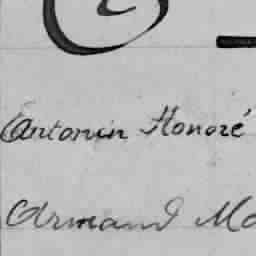 Antonin Honoré
Armand Mo